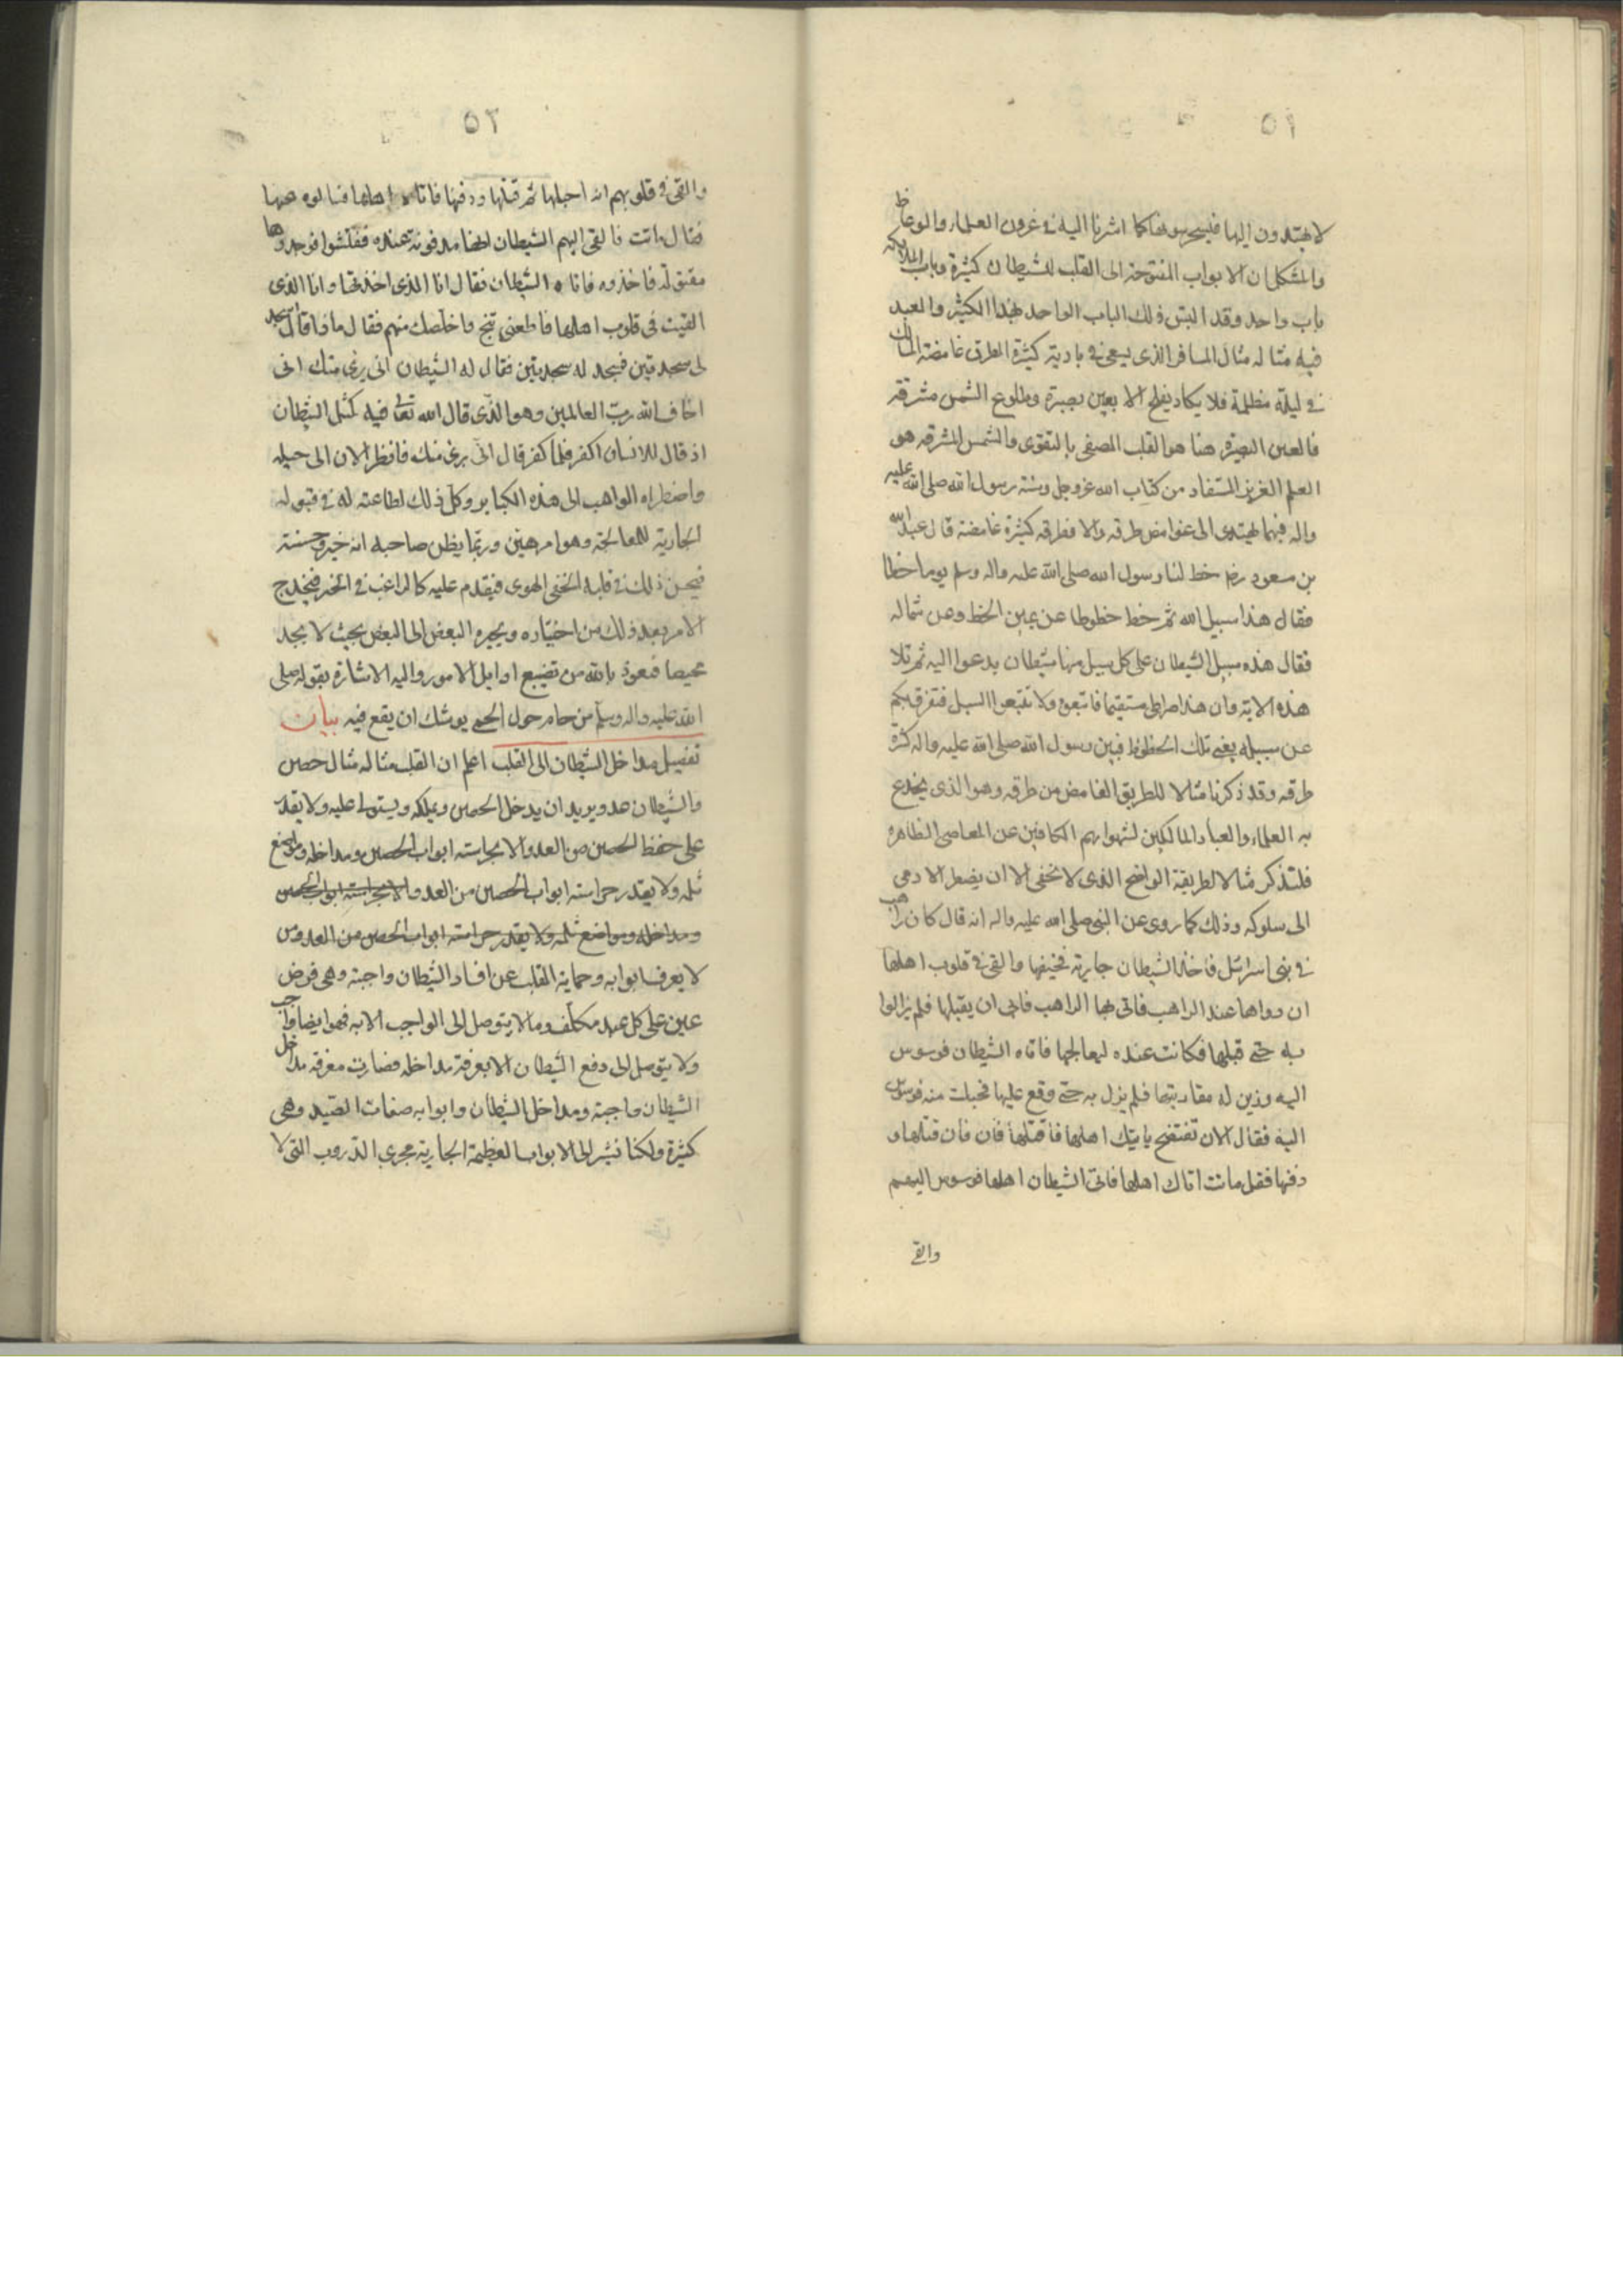 ٥١
لا يهتدون اليها فيحرسونها كما اشرنا اليه فى غرور العلماء والوعاظ
والمشكل ان الابواب المفتوحة الى القلب للشيطان كثيرة وباب الملائكه
باب واحد وقد التبس ذلك الباب الواحد بهذا الكثير والعبد
فيه مثاله مثال المسافر الذى يسعى فى بادية كثيرة الطرق غامضة المسالك
فى ليلة مظلمة فلا يكاد يفلح الا بعين بصيرة وطلوع الشمس مشرقة
فالعين البصيرة هنا هو القلب المصفى بالتقوى والشمس المشرقه هو
العلم الغزيز المستفاد من كتاب الله عز وجل وسنة رسول الله صلى الله عليه
واله فبهما يهتدى الى غوامض طرقه والا فطرقه كثيرة غامضة قال عبد الله
بن مسعود رض خط لنا رسول الله صلى الله عليه واله وسلم يوما خطا
فقال هذا سبيل الله ثم خط خطوطا عن يمين الخط وعن شماله
فقال هذه سبل الشيطان على كل سبيل منها شيطان يدعوا اليه ثم تلا
هذه الاية وان هذا صراطى مستقيما فاتبعوه ولا تتبعوا السبل فتفرق بكم
عن سبيله يعنى تلك الخطوط فبين رسول الله صلى الله عليه واله كثرة
طرقه وقد ذكرنا مثالا للطريق الغامض من طرقه وهو الذى يخدع
به العلماء والعباد المالكين لشهواتهم الكافين عن المعاصى الظاهره
فلنذكر مثالا لطريقة الواضح الذى لا تخفى الا ان يضطر الادمى
الى سلوكه وذلك كما روى عن النبى صلى الله عليه واله انه قال كان راهب
فى بنى اسرائل فاخذ الشيطان جارية فخنقها والقى فى قلوب اهلها
ان دواها عند الراهب فاتى بها الراهب فابى ان يقبلها فلم يزالوا
به حتى قبلها فكانت عنده ليعالجها فاتاه الشيطان فوسوس
اليه وزين له مقاربتها فلم يزل به حتى وقع عليها فحبلت منه فوسوس
اليه فقال الان تفتضح ياتيك اهلها فاقتلها فان فان قتلها و
دفنها فقل ماتت اتاك اهلها فاتى الشيطان اهلها فوسوس اليهم
والقى
٥٢
والقى فى قلوبهم انه احبلها ثم قتلها ودفنها فاتاه اهلها فسالوه عنها
فقال ماتت فالقى اليهم الشيطان انها مدفونة عنده ففتشوا فوجدوها
مقتولة فاخذوه فاتاه الشيطان فقال انا الذى اخذتها وانا الذى
القيت فى قلوب اهلها فاطعنى تنج واخلصك منهم فقال ماذا قال اسجد
لى سجدتين فسجد له سجدتين فقال له الشيطان انى برئ منك انى
اخاف الله رب العالمين وهو الذى قال الله تعالى فيه كمثل الشيطان
اذ قال للانسان اكفر فلما كفر قال انى برئ منك فانظر الان الى حيله
واضطراه الراهب الى هذه الكباير وكل ذلك لطاعته له فى قبوله
الجارية للمعالجة وهو امر هين وربما يظن صاحبه انه خير وحسنة
فيحسن ذلك فى قلبه الخفى الهوى فيقدم عليه كالراغب فى الخير فيخرج
الامر بعد ذلك من اختياره ويجره البعض الى البعض بحيث لا يجد
محيصا فنعوذ بالله من تضييع اوايل الامور واليه الاشارة بقوله صلى
الله عليه واله وسلم من حام حول الحمى يوشك ان يقع فيه بيان
تفصيل مداخل الشيطان الى القلب اعلم ان القلب مثاله مثال حصن
والشيطان عدو يريد ان يدخل الحصن ويملكه ويستولى عليه ولا يقدر
على حفظ الحصن من العدو الا بحراسته ابواب الحصن ومداخله ومواضع
ثلمه ولا يقدر حراسته ابواب الحصن من العدو الا بحراسته ابواب الحصن
ومداخله ومواضع ثلمه ولا يقدر حراسته ابواب الحصن من العدو من
لا يعرف ابوابه وحماية القلب عن افساد الشيطان واجبة وهى فرض
عين على كل عبد مكلف وما لا يتوصل الى الواجب الا به فهو ايضا واجب
ولا يتوصل الى دفع الشيطان الا بعرفة مداخله فصارت معرفة مداخل
الشيطان واجبة ومداخل الشيطان وابوابه صفات العبد وهى
كثيرة ولكنا نشير الى الابواب العظيمة الجارية مجرى الدروب التى لا